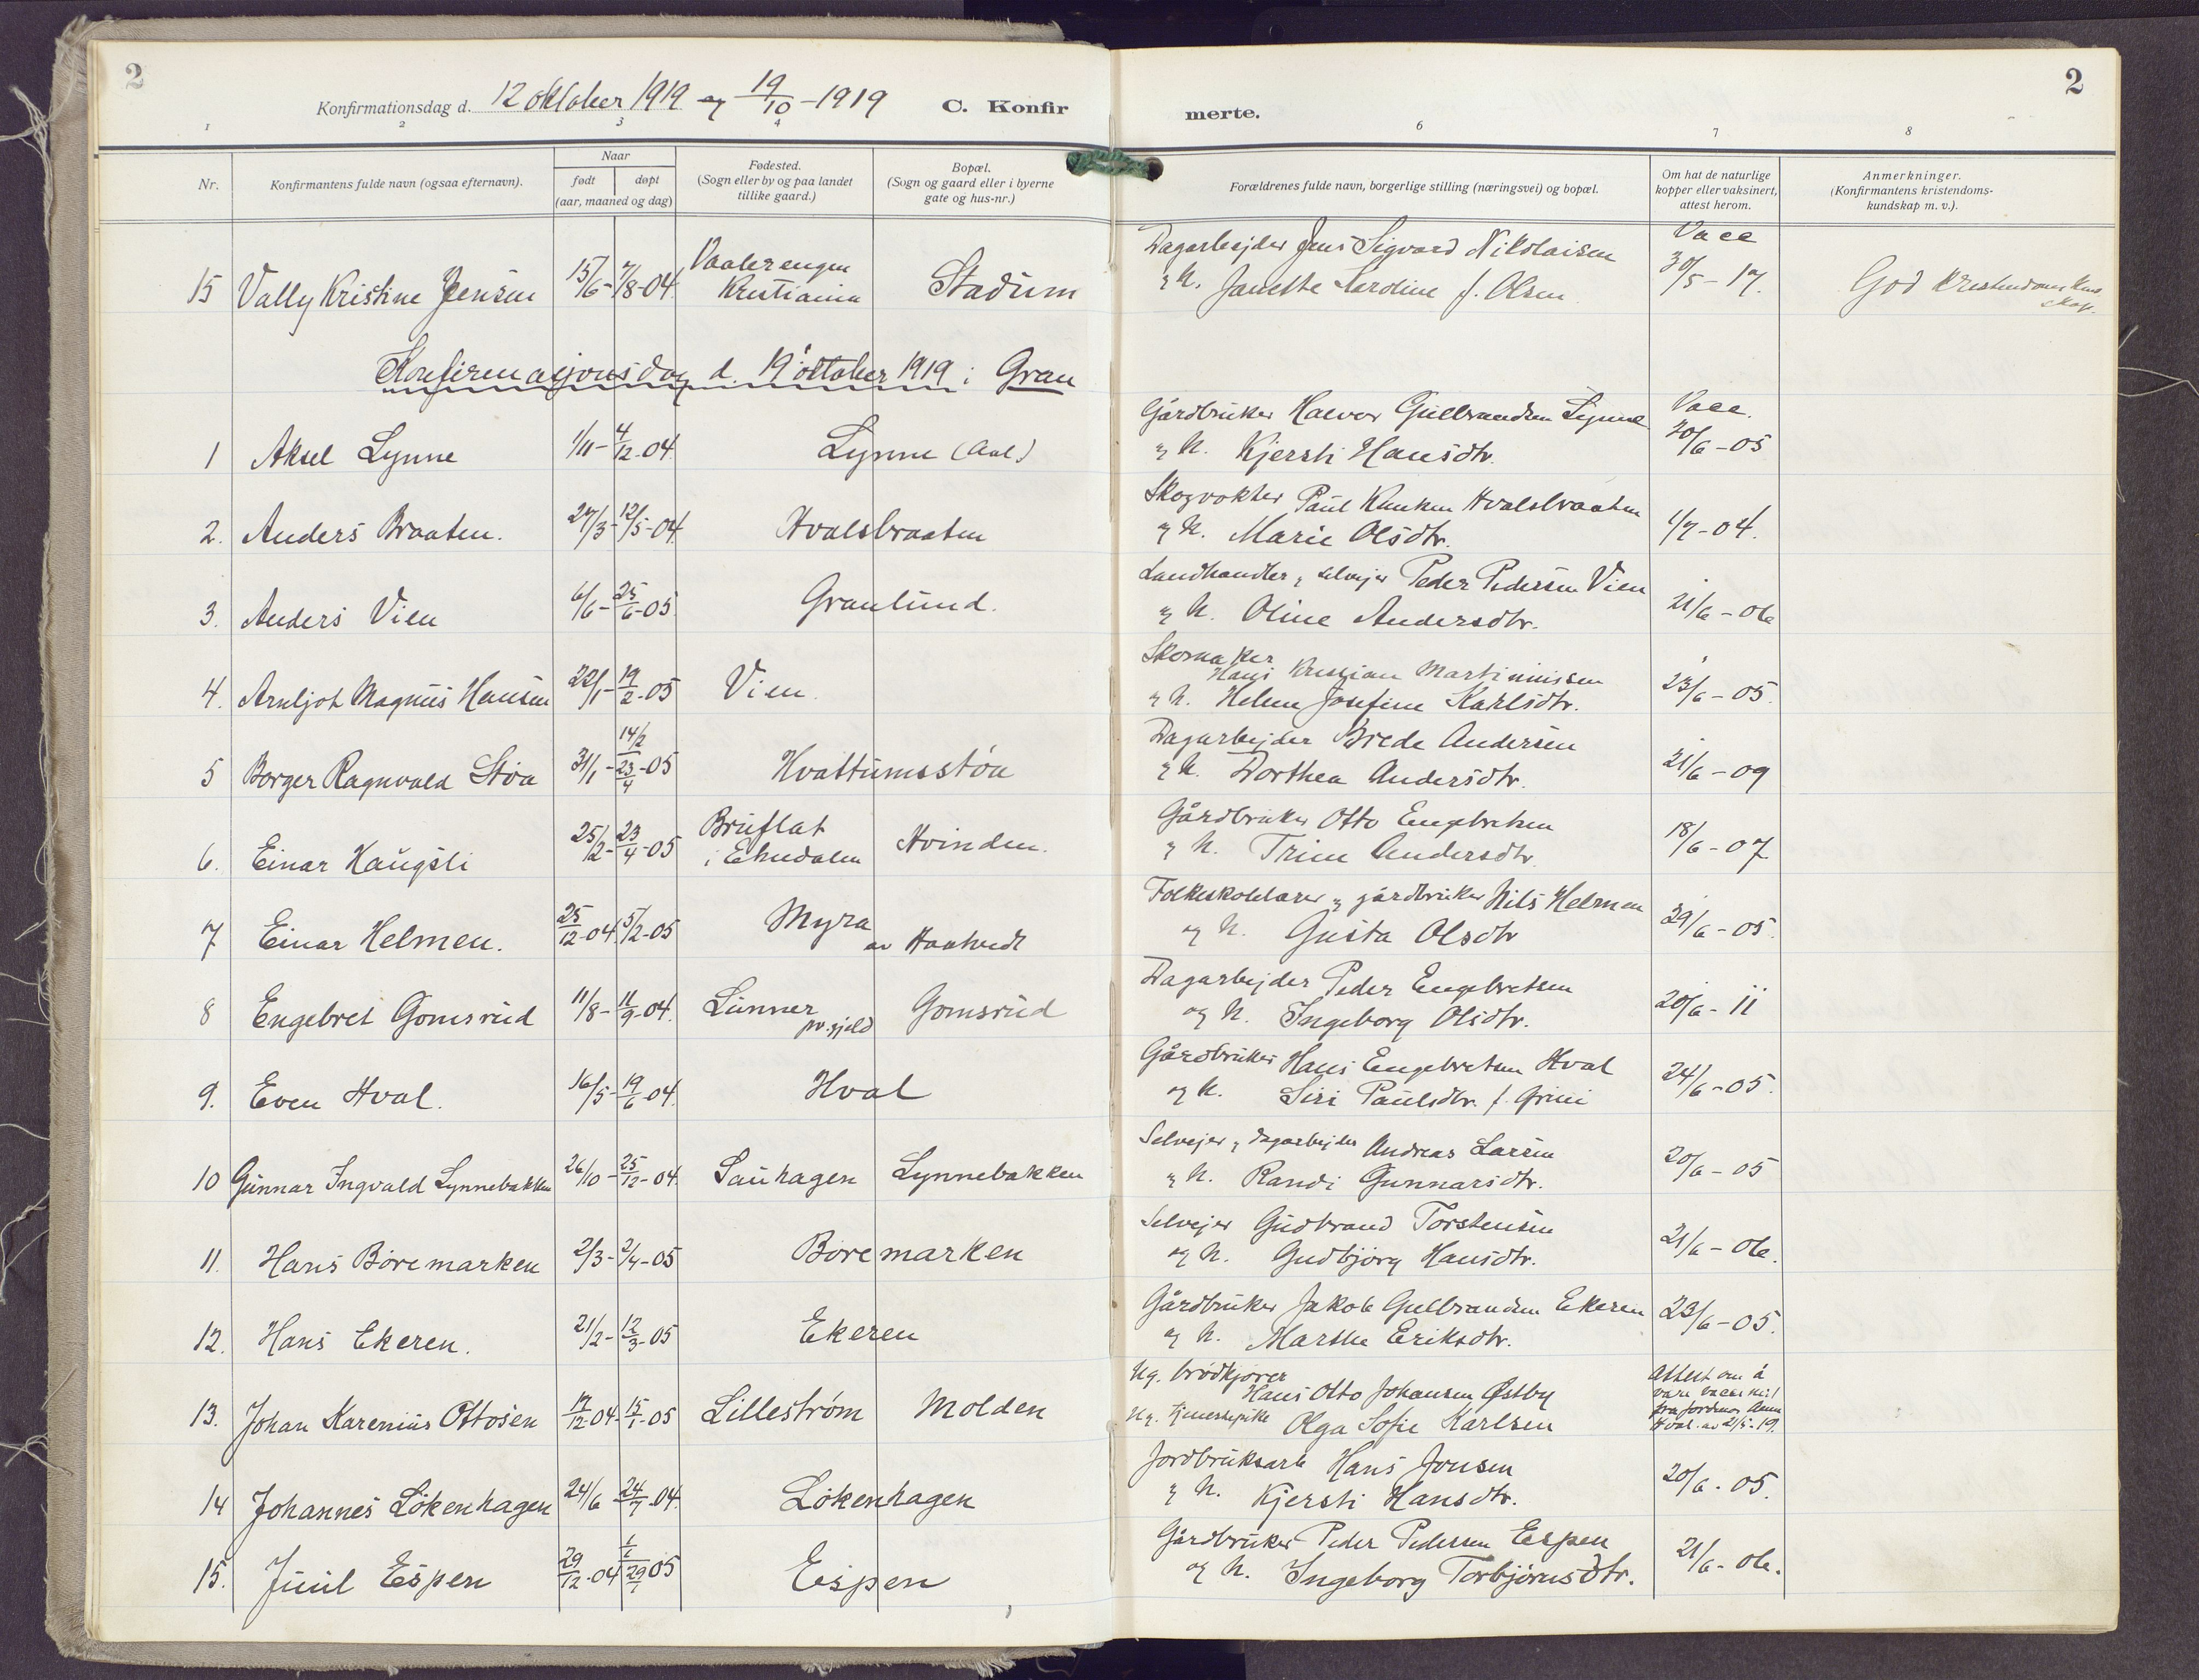 2
Konfirmationsdag d. 12 oktober 1919 og 19/10 - 1919
C. Konfir
merte.
2
1 2 3 4 6 7 8
Nr.
Konfirmantens fulde navn (ogsaa efternavn).
Naar
født døpt
(aar, maaned og dag)
Fødested.
(Sogn eller by og paa landet
tillike gaard.)
Bopæl.
(Sogn og gaard eller i byerne
gate og hus-nr.)
Forældrenes fulde navn, borgerlige stilling (næringsvei) og bopæl.
Om hat de naturlige
kopper eller vaksinert,
attest herom.
Anmerkninger.
(Konfirmantens kristendoms-
kundskap m. v.).
15 Vally Kristine Jensen 15/6 - 7/8-04 Vaalerengen
Kristiania Stadum
Dagarbejder Jens Sigvard Nikolaisen
og h. Janette Karoline f. Olsen
Vacc
30/5 - 17.
God Kristendomskund
skap.
Konfirmasjonsdag d. 19 oktober 1919 i Gran
1 Aksel Lynne 1/11 - 4/12-04 Lynne (Aal)
Gårdbruker Halvor Gulbrandsen Lynne
og h. Kjersti Hansdtr.
Vacc.
20/6 - 05
2. Anders Braaten. 27/3 - 12/5-04 Hvalsbraaten
Skogvokter Paul Hvalsbraaten
og h. Marie Olsdtr.
1/7 - 04.
3. Anders Vien 6/6 - 25/6-05 Granlund.
Landhandler, selvejer Peder Pedersen Vien
og h. Oline Andersdtr.
21/6 - 06
4. Arnljot Magnus Hansen 22/1 - 19/2-05 Vien.
Skomaker
Hans Kristian Martiniussen
og h. Helene Josefine Karlsdtr.
23/6 - 05.
5 Borger Ragnvald Støa 31/1 - 14/2 23/4-05 Hvattumsstøa
Dagarbejder Brede Andersen
og h. Dorthea Andersdtr.
21/6 - 09
6. Einar Haugsli 25/2 - 23/4-05 Bruflat
i Etnedalen Hvinden.
Gårdbruker Otto Engebretsen
og h. Trine Andersdtr.
18/6 - 07
7 Einar Helmen. 25/12-04 5/2-05 Myra
av Haatvedt
Folkeskolelærer og gårdbruker Nils Helmen
og h. Gusta Olsdtr
29/6 - 05.
8 Engebret Gomsrud 11/8 - 11/9-04. Lunner
pr.gjeld Gomsrud
Dagarbejder Peder Engebretsen
og h. Ingeborg Olsdtr.
20/6 - 11
9. Even Hval. 16/5 - 19/6-04. Hval
Gårdbruker Hans Engebretsen Hval
og h. Siri Paulsdtr. f. Grini
24/6 - 05.
10 Gunnar Ingvald Lynnebakken 26/10 - 25/12-04. Sauhagen Lynnebakken
Selvejer, dagarbejder Andreas Larsen
og h. Randi Gunnarsdtr.
20/6 - 05
11. Hans Boremarken 2/3 - 2/4-05 Boremarken
Selvejer Gudbrand Torstensen
og h. Gudbjørg Hansdtr.
21/6 - 06.
12. Hans Ekeren. 21/2 - 12/3-05 Ekeren
Gårdbruker Jakob Gulbrandsen Ekeren
og h. Marthe Eriksdtr.
23/6 - 05.
13. Johan Karenius Ottosen 17/12 04 - 15/1-05 Lillestrøm Molden
Ug. brødkjører
Hans Otto Johansen Østby
Ug. tjenestepike Olga Sofie Karlsen
Attest om å
være
fra Jordmor
Hval. av 21/5-19.
14 Johannes Løkenhagen 24/6 24/7-04. Løkenhagen
Jordbruksarb Hans Jonsen
og h. Kjersti Hansdtr.
20/6 . 05.
15. Juul Espen 29/12-04 29/1 05 Espen
Gårdbruker Peder Pedersen Espen
og h. Ingeborg Torbjørnsdtr.
21/6 - 06.